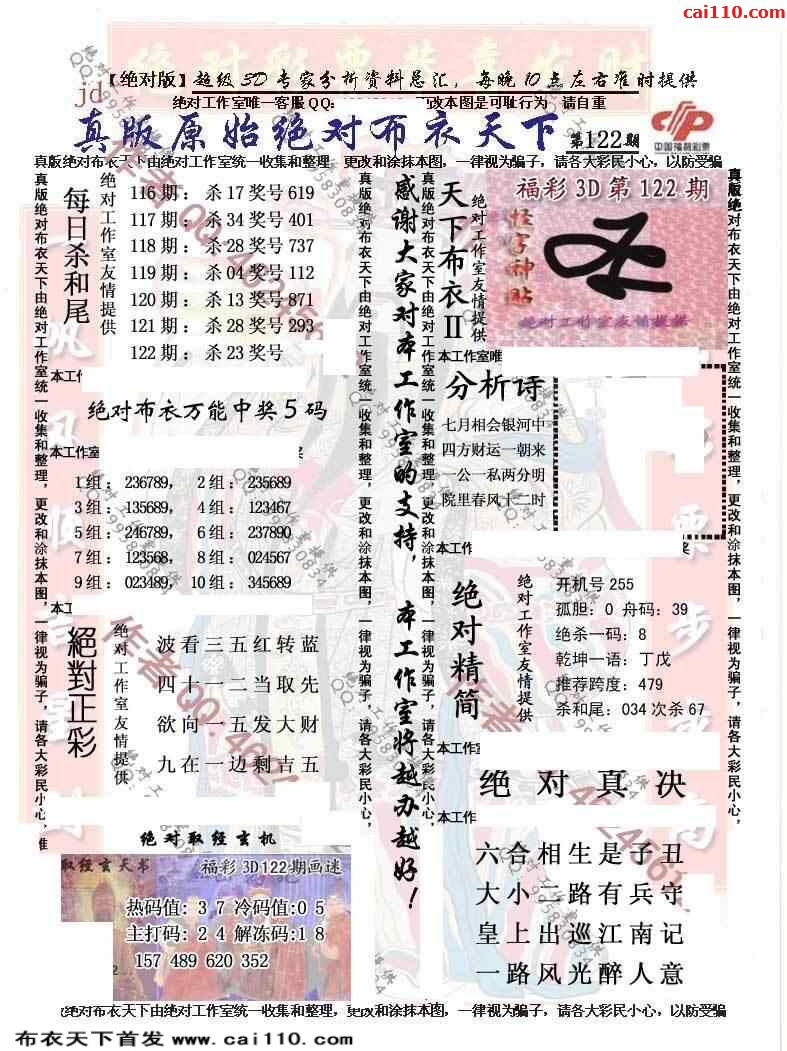 cai110.com
【绝对版】超级3D专家分析资料总汇，每晚10点左右准时提供
jd
绝对工作室唯一客服QQ：
改本图是可耻行为 请自重
真版原始绝对布衣天下 第122期
中国福利彩票
真版绝对布衣天下由绝对工作室统一收集和整理，更改和涂抹本图，一律视为骗子，请各大彩民小心，以防受骗
真版绝对布衣天下由绝对工作室统一收集和整理，更改和涂抹本图，一律视为骗子，请各大彩民小心，
每日杀和尾
绝对工作室友情提供
116期：杀17奖号619
117期：杀34奖号401
118期：杀28奖号737
119期：杀04奖号112
120期：杀13奖号871
121期：杀28奖号293
122期：杀23奖号
本工作
绝对布衣万能中奖5码
本工作室
1组：236789， 2组：235689
3组：135689， 4组：123467
5组：246789， 6组：237890
7组：123568， 8组：024567
9组：023489， 10组：345689
本工
絕對正彩
绝对工作室友情提供
波看三五红转蓝
四十一二当取先
欲向一五发大财
九在一边剩吉五
绝对取经玄机
取经玄天书 福彩3D122期画迷
热码值：3 7 冷码值：0 5
主打码：2 4 解冻码：1 8
157 489 620 352
真版绝对布衣天下由绝对工作室统一收集和整理，更改和涂抹本图，一律视为骗子，请各大彩民小心，
感谢大家对本工作室的支持，本工作室将越办越好！
真版绝对布衣天下由绝对工作室统一收集和整理，更改和涂抹本图，一律视为骗子，请各大彩民小心，
天下布衣II
绝对工作室友情提供
福彩3D第122期
怪字神贴
绝对工作室友情提供
本工作室唯
分析诗
七月相会银河中
四方财运一朝来
一公一私两分明
院里春风十二时
本工作
绝对精简
绝对工作室友情提供
开机号255
孤胆：0 舟码：39
绝杀一码：8
乾坤一语：丁戊
推荐跨度：479
杀和尾：034次杀67
本工作室
绝对真决
本工作
六合相生是子丑
大小二路有兵守
皇上出巡江南记
一路风光醉人意
真版绝对布衣天下由绝对工作室统一收集和整理，更改和涂抹本图，一律视为骗子，请各大彩民小心，
绝对布衣天下由绝对工作室统一收集和整理，更改和涂抹本图，一律视为骗子，请各大彩民小心，以防受骗
布衣天下首发 www.cai110.com